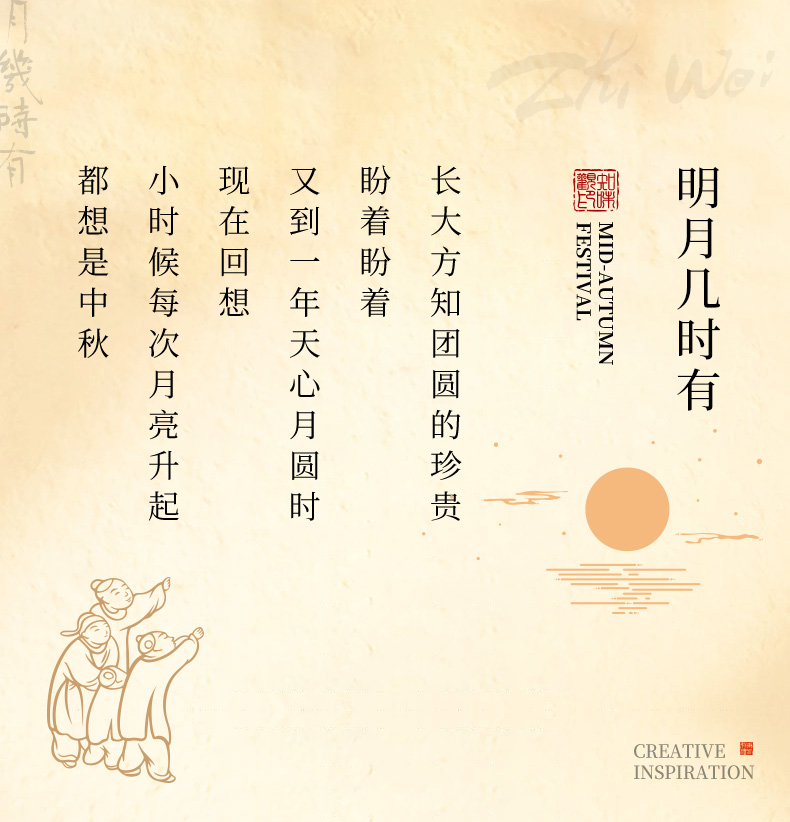 明月几时有
MID-AUTUMN
FESTIVAL
知味
观印
长大方知团圆的珍贵
盼着盼着
又到一年天心月圆时
现在回想
小时候每次月亮升起
都想是中秋
Zhi Wei
月幾時有
CREATIVE
INSPIRATION